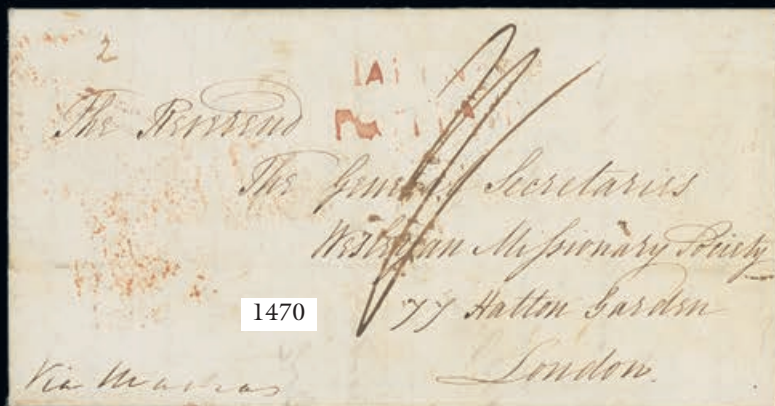 2
The Reverend
The General Secretaries
Wesleyan Missionary Society
77 Hatton Garden
London.
Via Madras
1470